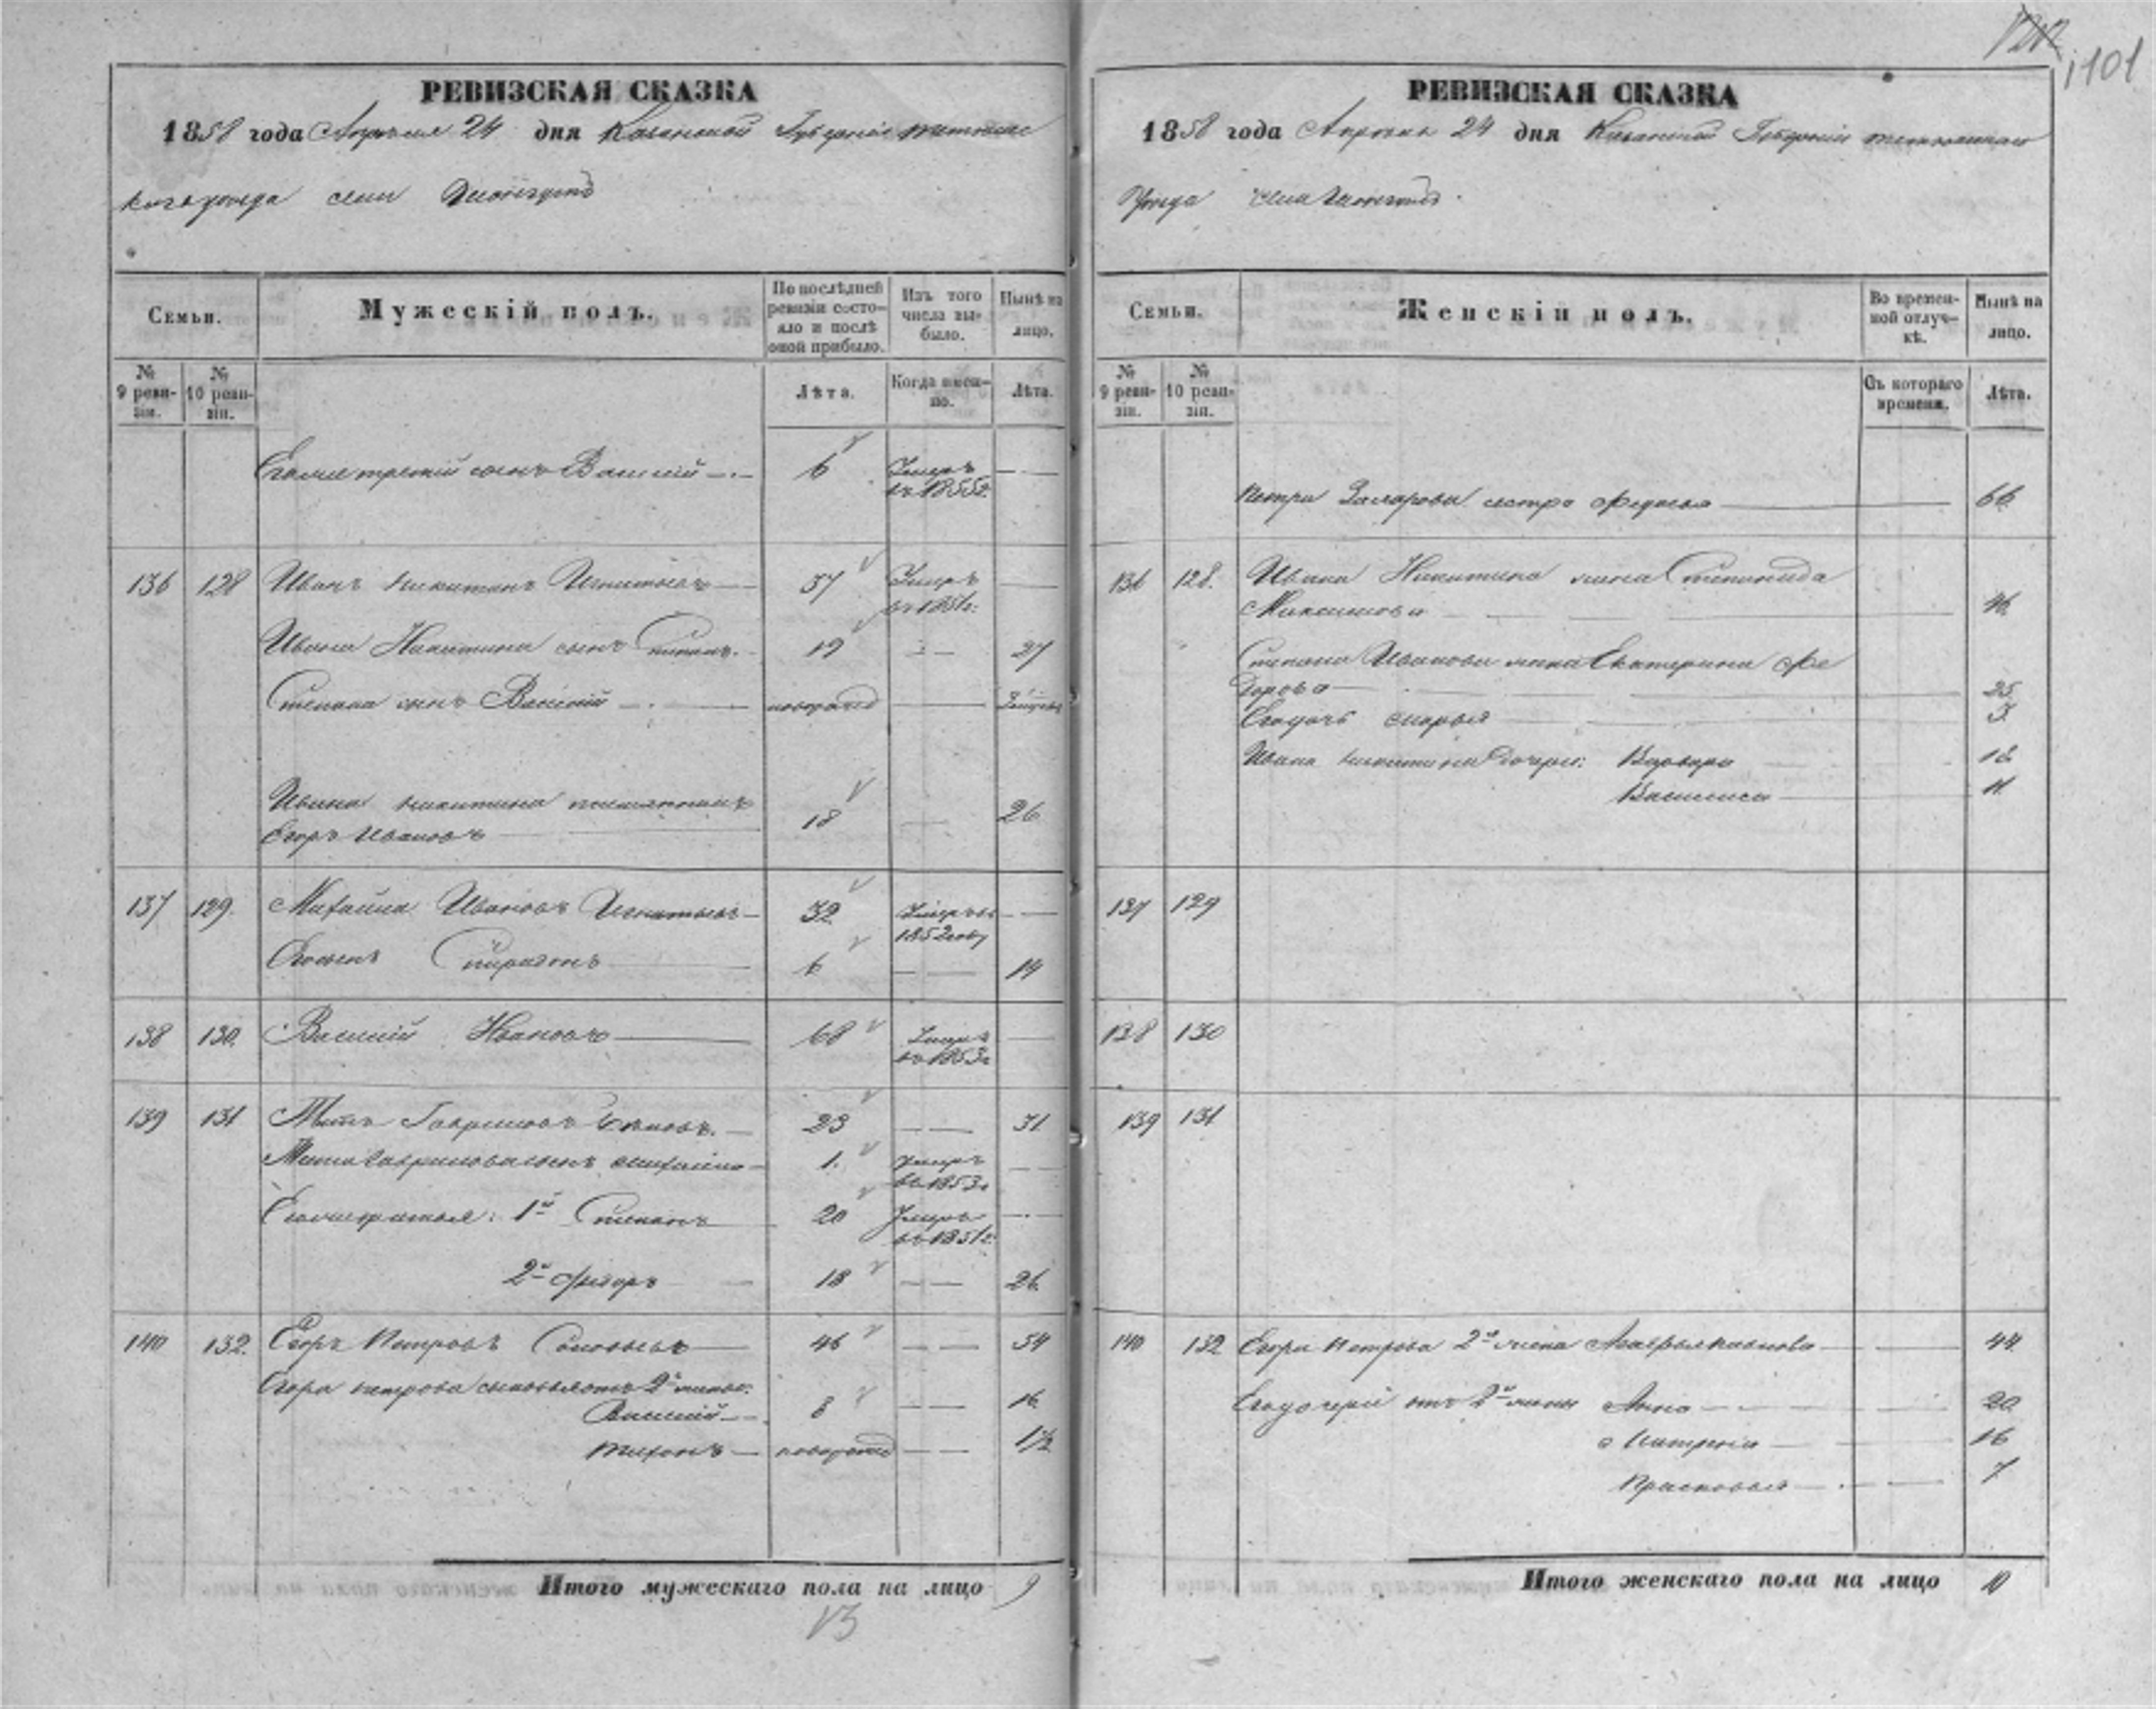 1101
РЕВИЗСКАЯ СКАЗКА
1858 года Апреля 24 дня Казанской Губернии
уезда села
Семьи.
Мужескій полъ.
По послѣдней ревизіи состояло и послѣ оной прибыло.
Изъ того числа выбыло.
Нынѣ на лицо.
№ 9 ревизіи.
№ 10 ревизіи.
Лѣта.
Когда именно.
Лѣта.
Его же третий сынъ Василий 6 Умеръ въ 1855г.
136 128 Иванъ Никитинъ Игнатьевъ 37 Умеръ въ 1851г.
Ивана Никитина сынъ Степанъ 19 27
Степана сынъ Василий новорожд
Ивана Никитина племянникъ
Егоръ Ивановъ 18 26
137 129 Михайла Ивановъ Игнатьевъ 32 Умеръ въ 1852 году
Его сынъ Спиридонъ 6 14
138 130 Василий Ивановъ 68 Умеръ въ 1853г
139 131 Гавриловъ 23 31
Гаврилова сынъ Михайла 1 Умеръ въ 1853г
Его же братья: 1й Степанъ 20 Умеръ въ 1851г.
2й Федоръ 18 26
140 132 Егоръ Петровъ Соловьевъ 46 54
Егора Петрова сыновья отъ 2й жены:
Василий 8 16
Тихонъ новорожд 1½
Итого мужескаго пола на лицо 9
13
РЕВИЗСКАЯ СКАЗКА
1858 года Апреля 24 дня Казанской Губернии
Уезда села
Семьи.
Женскій полъ.
Во временной отлучкѣ.
Нынѣ на лицо.
№ 9 ревизіи.
№ 10 ревизіи.
Съ котораго времени.
Лѣта.
Петра Захарова сестра Федосья 66
136 128 Ивана Никитина жена Степанида
Максимова 46
Степана Иванова жена Екатерина Фе
дорова 25
Его дочь Марья 3
Ивана Никитина дочери: Варвара 18
Василиса 11
137 129
138 130
139 131
140 132 Егора Петрова 2я жена 44
Его дочери отъ 2й жены Анна 20
Матрена 16
Прасковья 7
Итого женскаго пола на лицо 10